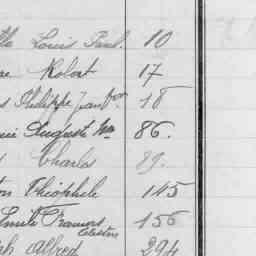 Louis Paul. 10
Robert 17
Philippe Jean Bon 18
Auguste Me 86.
Charles 89.
Théophile 145
Emile Francois Celestin 156
Alfred 294